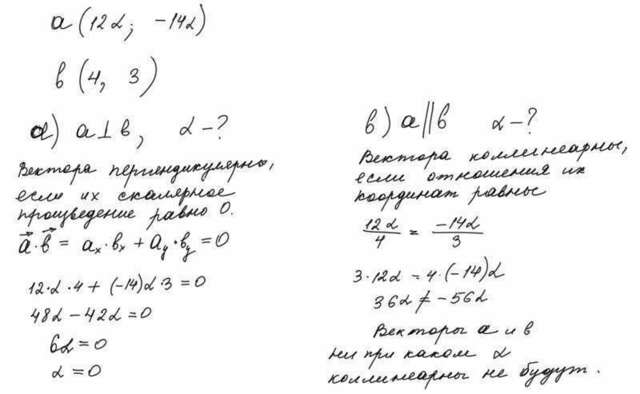 a (12α; -14α)
в (4, 3)
а) a⊥в, α-?
Вектора перпендикулярны,
если их скалярное
произведение равно 0.
a⃗·в⃗ = aₓ·вₓ + a_y·в_y = 0
12·α·4 + (-14)α·3 = 0
48α - 42α = 0
6α = 0
α = 0
в) a||в α-?
Вектора коллинеарны,
если отношения их
координат равны
12α/4 = -14α/3
3·12α = 4·(-14)α
36α ≠ -56α
Векторы а и в
ни при каком α
коллинеарны не будут.